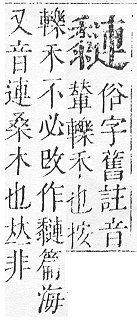 俗字舊註音
輦轢禾也按
轢禾不必改作篇海
又音連桑木也𠀤非